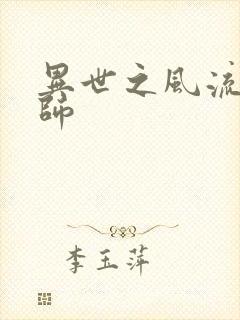 異世之風流
師
李玉萍